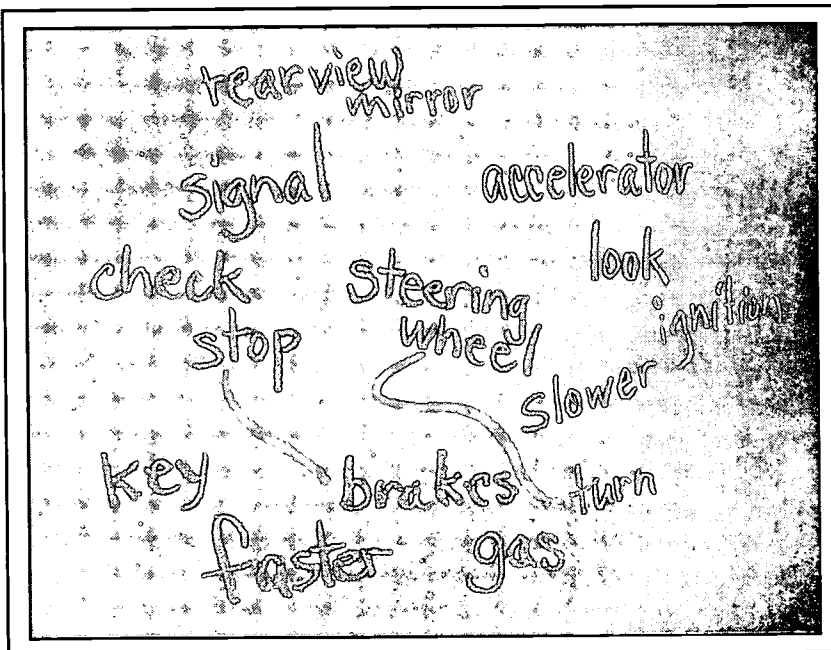 rearview
mirror
signal
accelerator
check
steering
wheel
look
ignition
stop
slower
key
brakes
turn
faster
gas